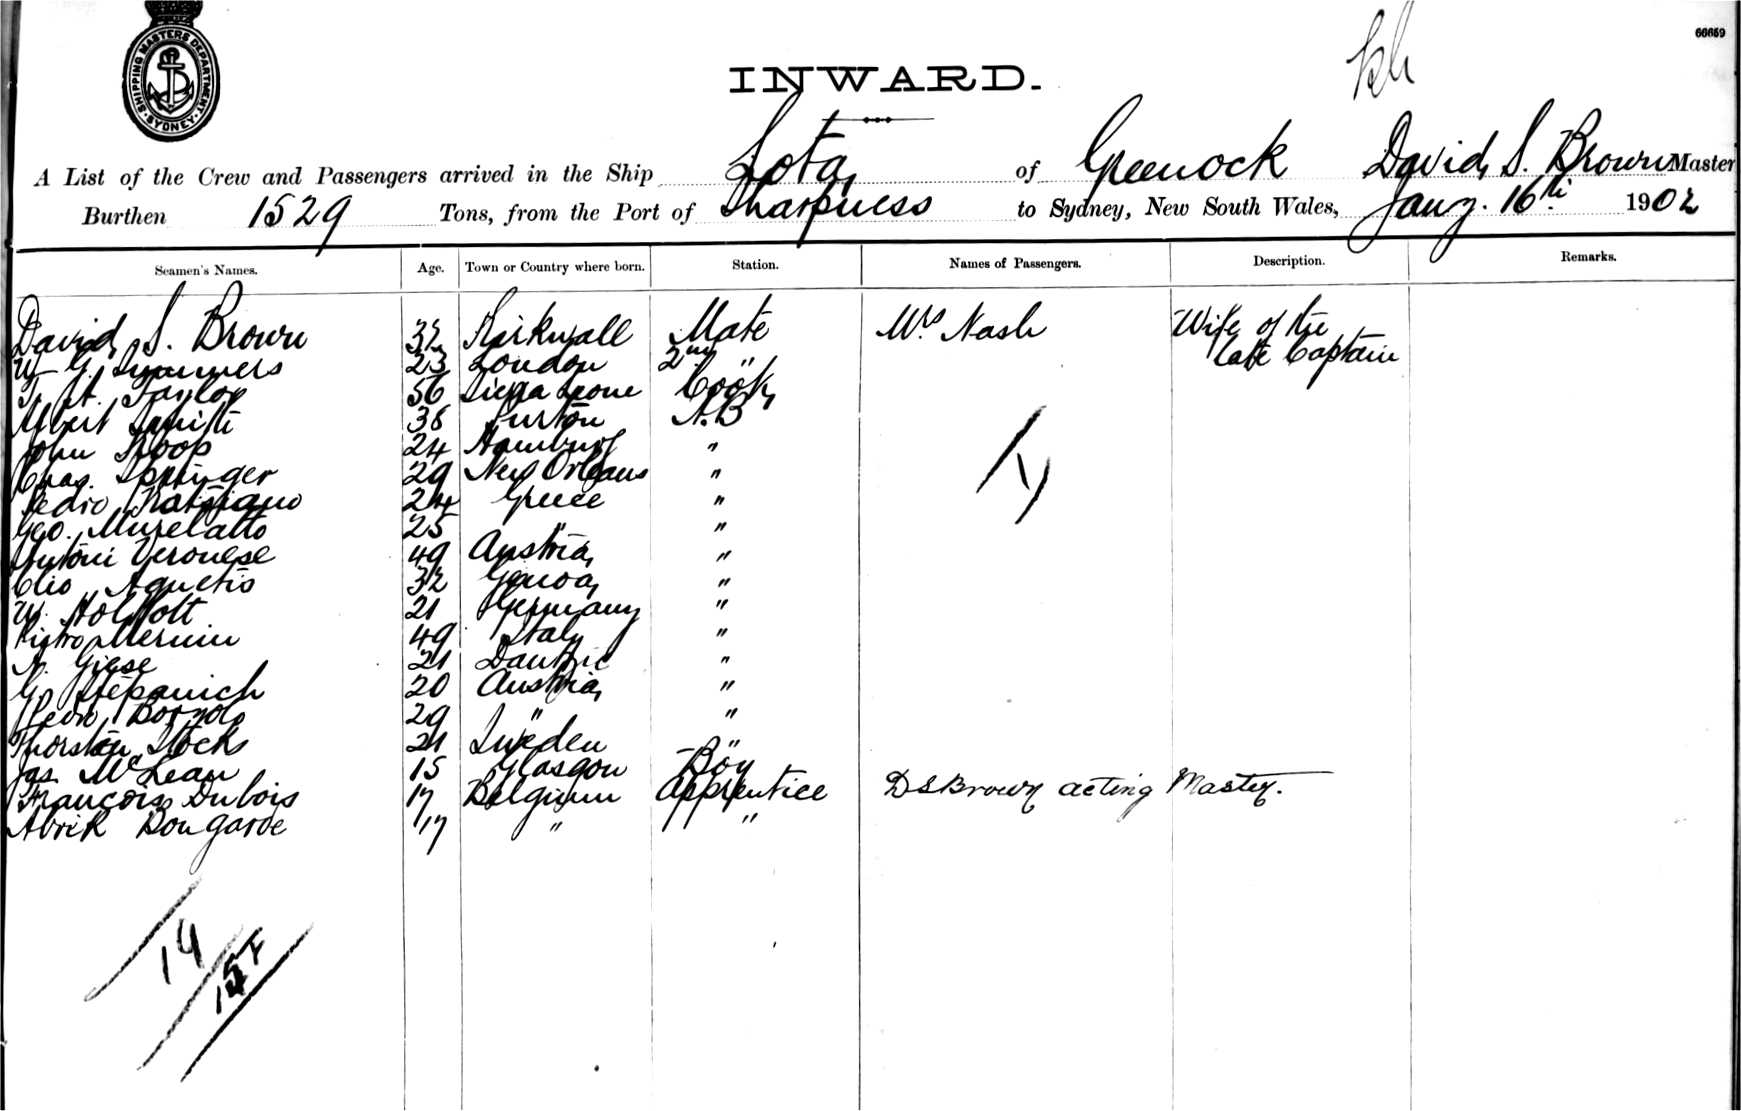 SHIPPING MASTERS DEPARTMENT
SYDNEY
66659
INWARD.
A List of the Crew and Passengers arrived in the Ship Lota, of Greenock David S. Brown Master
Burthen 1529 Tons, from the Port of Sharpness to Sydney, New South Wales, Jany. 16th 1902
Seamen's Names. Age. Town or Country where born. Station. Names of Passengers. Description. Remarks.
David S. Brown Kirkwall Mate Mrs Nash Wife of the
late Captain
Wm G. Summers 23 London 2nd "
T. A. Taylor 56 Sierra Leone Cook
Albert Smith 38 A.B
John 24 Hamburg "
Chas. Springer 29 New Orleans "
Pedro 24 Greece "
Geo. 25 " "
Antoni Veronese 49 Austria "
Clio Agnetis 32 Genoa "
W. 21 Germany "
Pietro 49 Italy "
Giese 21 Dantzic "
Stepanich 20 Austria "
29 " "
Thorsten Stocks 21 Sweden "
Jas. McLean 15 Glasgow Boy
François Dubois 17 Belgium Apprentice D S Brown acting Master.
Abrik Bongarde 17 " "
19